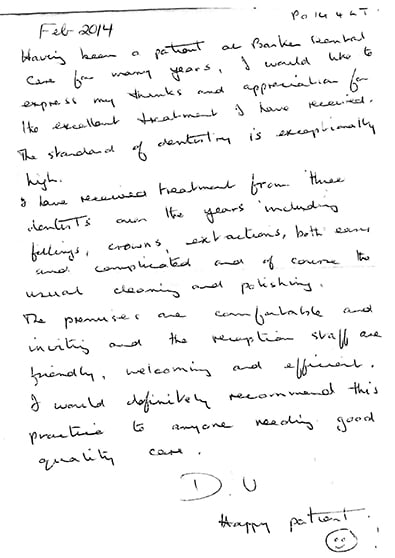 Feb 2014
PO14 4LT
Having been a patient at Barker Dental
Care for many years, I would like to
express my thanks and appreciation for
the excellent treatment I have received.
The standard of dentistry is exceptionally
high.
I have received treatment from three
dentists over the years including
fillings, crowns, extractions, both easy
and complicated and of course the
usual cleaning and polishing.
The premises are comfortable and
inviting and the reception staff are
friendly, welcoming and efficient.
I would definitely recommend this
practice to anyone needing good
quality care.
D.U
Happy patient.